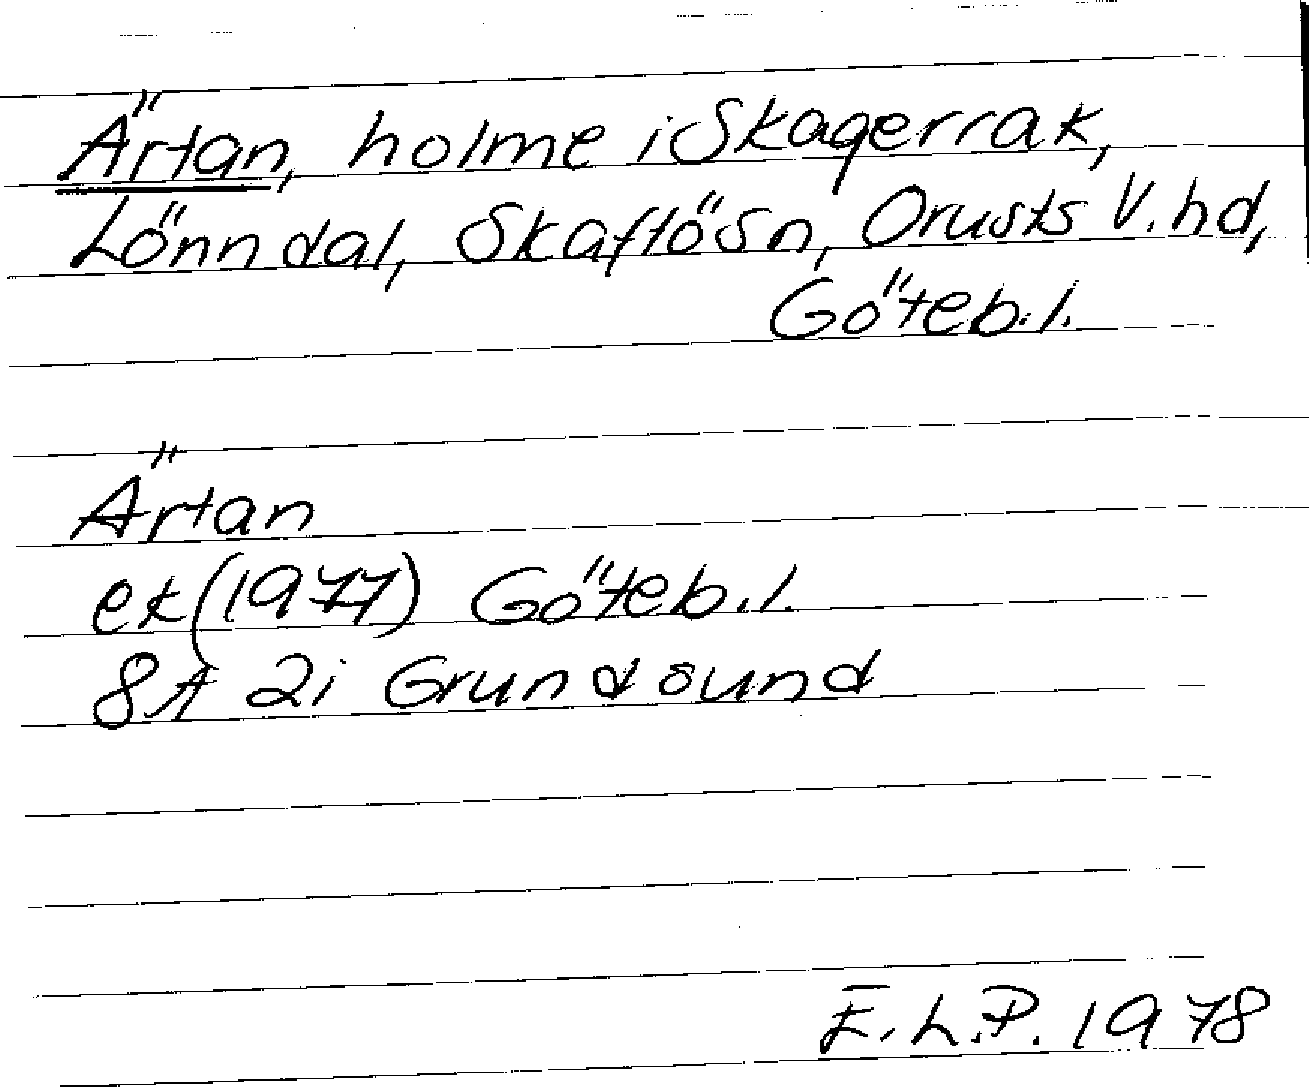 Ärtan, holme i Skagerrak,
Lönndal, Skaftösn, Orusts V. hd,
Göteb. l.
Ärtan
ek (1977) Göteb. l.
8A 2i Grundsund
E. L. P. 1978